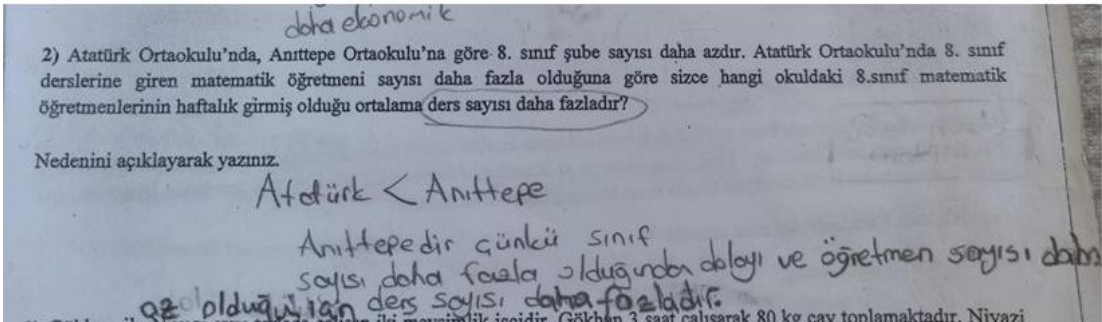 daha ekonomik
2) Atatürk Ortaokulu'nda, Anıttepe Ortaokulu'na göre 8. sınıf şube sayısı daha azdır. Atatürk Ortaokulu'nda 8. sınıf
derslerine giren matematik öğretmeni sayısı daha fazla olduğuna göre sizce hangi okuldaki 8.sınıf matematik
öğretmenlerinin haftalık girmiş olduğu ortalama ders sayısı daha fazladır?
Nedenini açıklayarak yazınız.
Atatürk < Anıttepe
Anıttepedir çünkü sınıf
sayısı daha fazla olduğundan dolayı ve öğretmen sayısı daha
az olduğu için ders sayısı daha fazladır.
iki mevsimlik işçidir. Gökhan 3 saat çalışarak 80 kg çay toplamaktadır. Niyazi